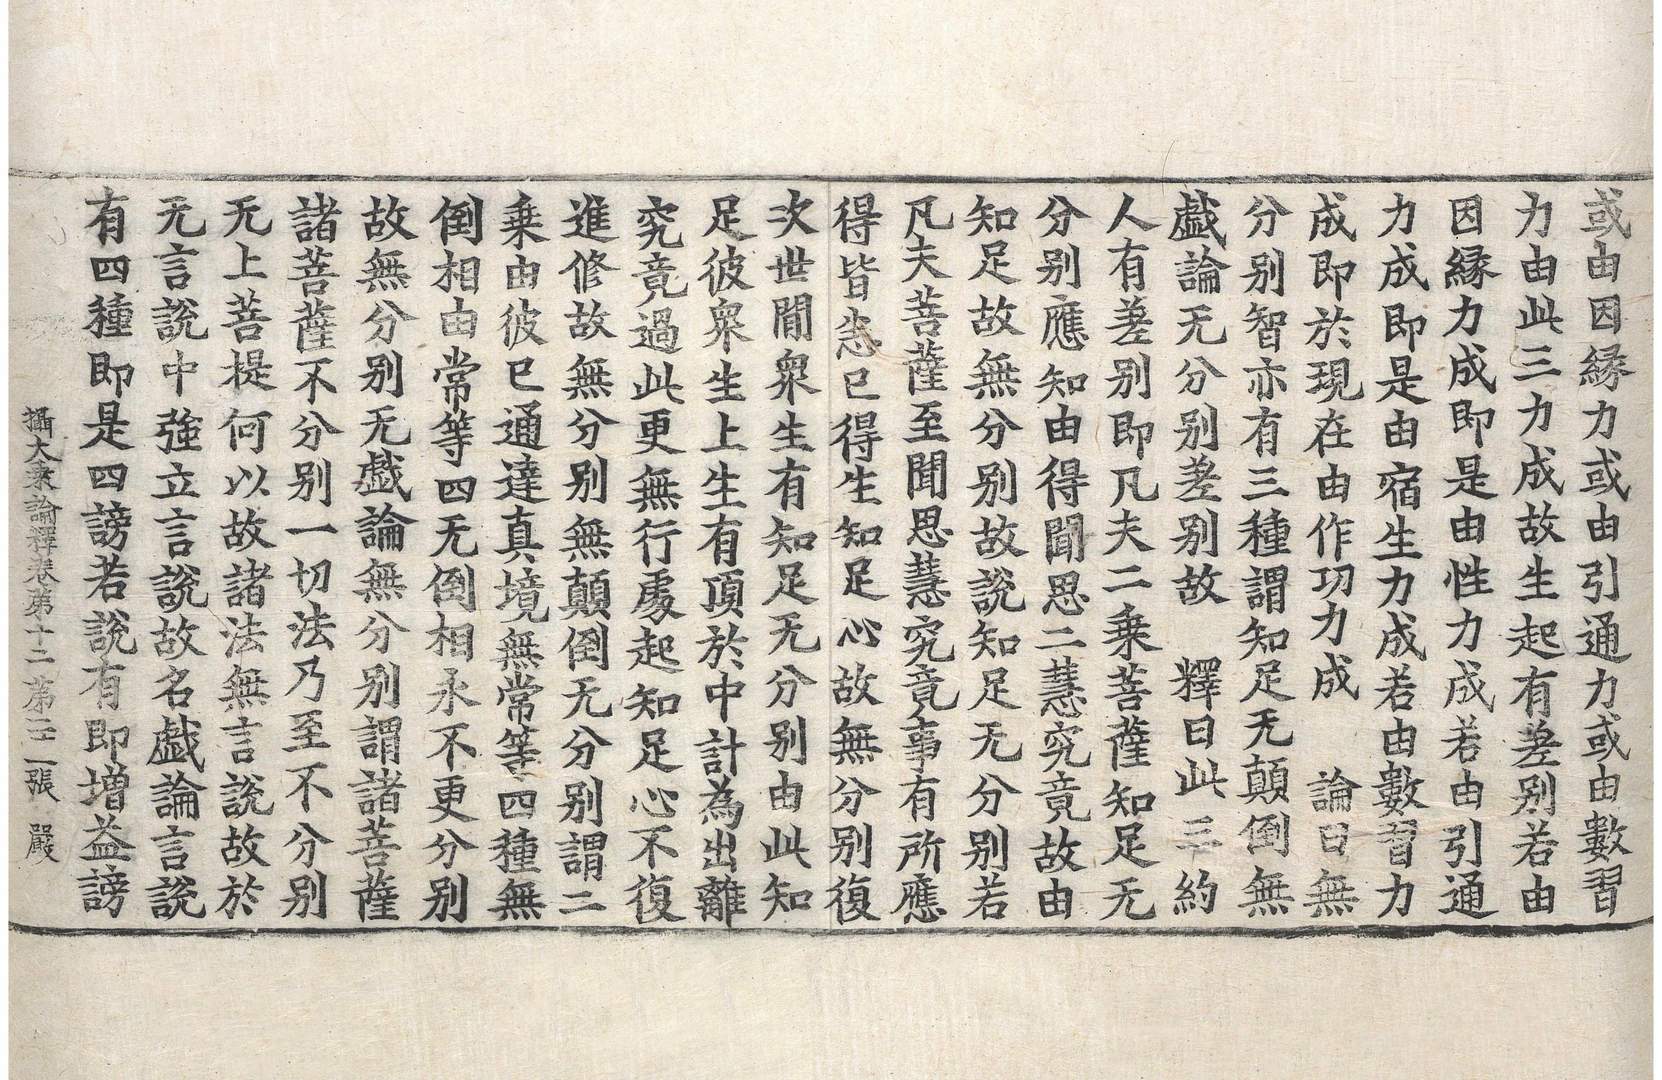 或由因縁力或由引通力或由數習
力由此三力成故生起有差别若由
因縁力成即是由性力成若由引通
力成即是由宿生力成若由數習力
成即於現在由作功力成　論曰無
分别智亦有三種謂知足无顛倒無
戯論无分别差别故　釋曰此三約
人有差别即凡夫二乗菩薩知足无
分别應知由得聞思二慧究竟故由
知足故無分别故說知足无分别若
凡夫菩薩至聞思慧究竟事有所應
得皆悉已得生知足心故無分别復
次世間衆生有知足无分别由此知
足彼衆生上生有頂於中計為出離
究竟過此更無行處起知足心不復
進修故無分别無顛倒无分别謂二
乗由彼已通達真境無常等四種無
倒相由常等四无倒相永不更分别
故無分别无戯論無分别謂諸菩薩
諸菩薩不分别一切法乃至不分别
无上菩提何以故諸法無言說故於
无言說中強立言說故名戯論言說
有四種即是四謗若說有即增益謗
攝大乗論釋卷第十二 第三二張 嚴